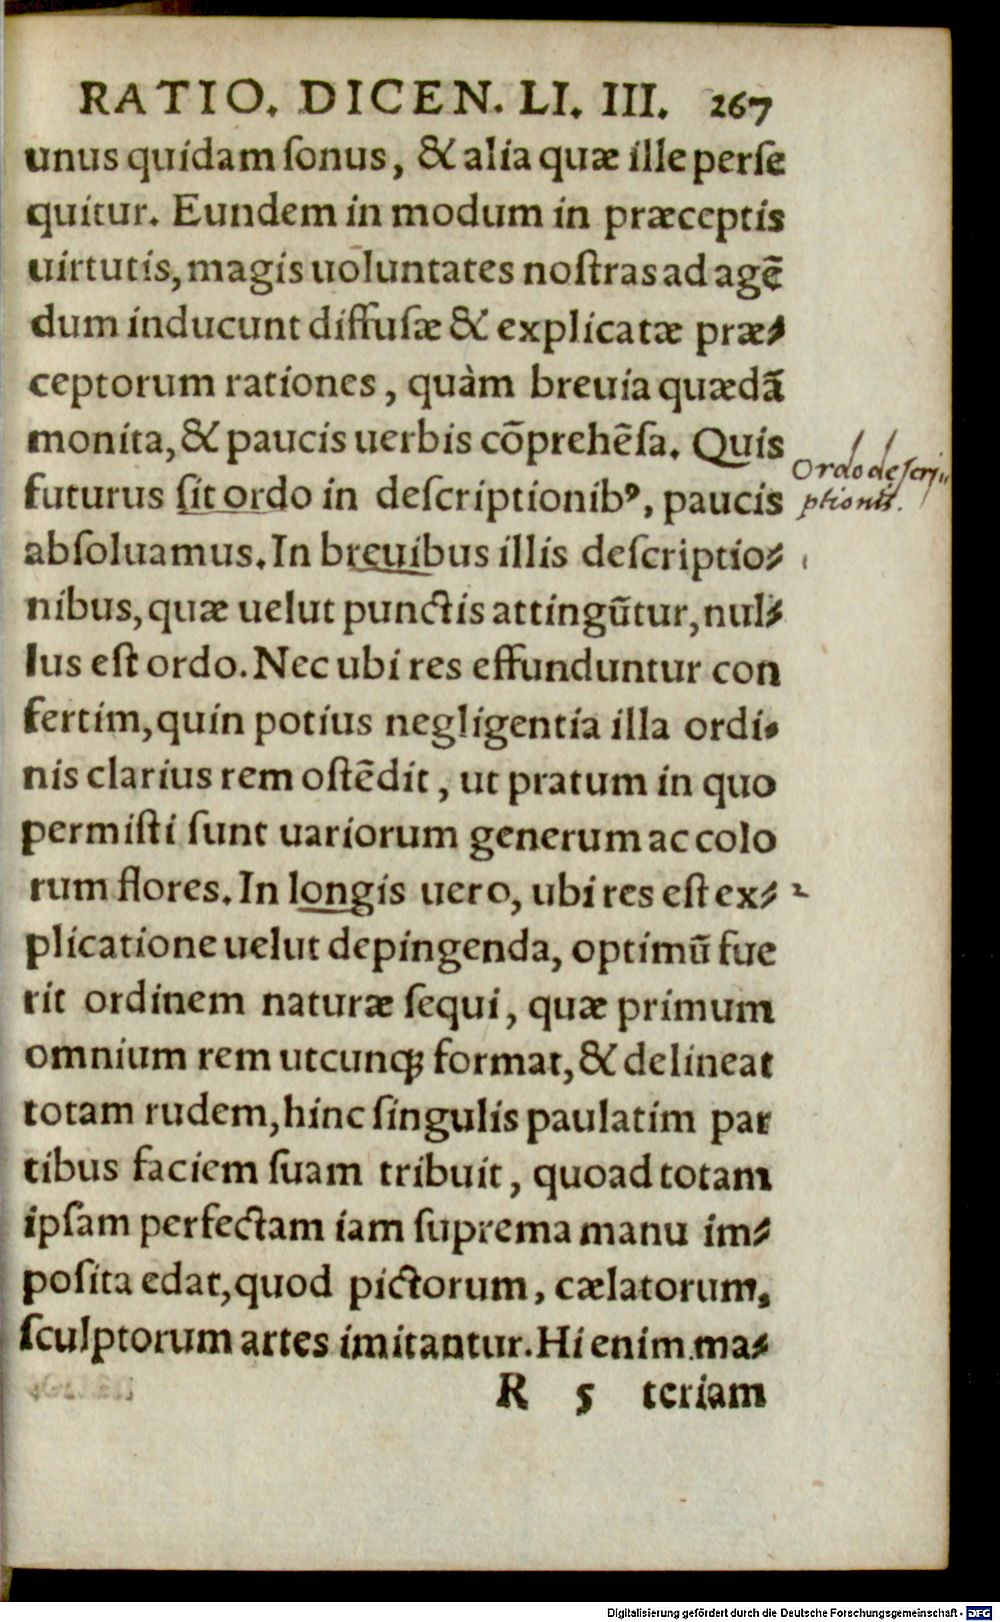 RATIO. DICEN. LI. III. 267
unus quidam ſonus, & alia quæ ille perſe
quitur. Eundem in modum in præceptis
uirtutis, magis uoluntates noſtras ad agẽ
dum inducunt diffuſæ & explicatæ præ⸗
ceptorum rationes, quàm breuia quædã
monita, & paucis uerbis cõprehẽſa. Quis
futurus ſit ordo in deſcriptionibꝰ, paucis
abſoluamus. In breuibus illis deſcriptio⸗
nibus, quæ uelut punctis attingũtur, nul⸗
lus eſt ordo. Nec ubi res effunduntur con
fertim, quin potius negligentia illa ordi⸗
nis clarius rem oſtẽdit, ut pratum in quo
permiſti ſunt uariorum generum ac colo
rum flores. In longis uero, ubi res eſt ex⸗
plicatione uelut depingenda, optimũ fue
rit ordinem naturæ ſequi, quæ primum
omnium rem utcunq; format, & delineat
totam rudem, hinc ſingulis paulatim par
tibus faciem ſuam tribuit, quoad totam
ipſam perfectam iam ſuprema manu im⸗
poſita edat, quod pictorum, cælatorum,
ſculptorum artes imitantur. Hi enim ma⸗
R 5 teriam
Ordo deſcri
ptionis.
1
2
Digitalisierung gefördert durch die Deutsche Forschungsgemeinschaft - DFG